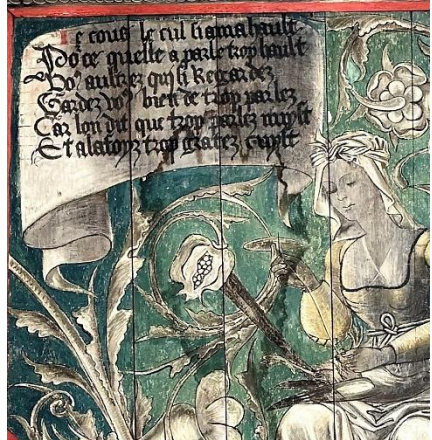 Je cous le cul hamahault
Po' ce quelle a parle trop hault
Vo' aultrez qui li Regardez
Gardez vo' bien de trop parlez
Car lon dit que trop parlez nuyst
Et alafoyz trop gratez cuyst